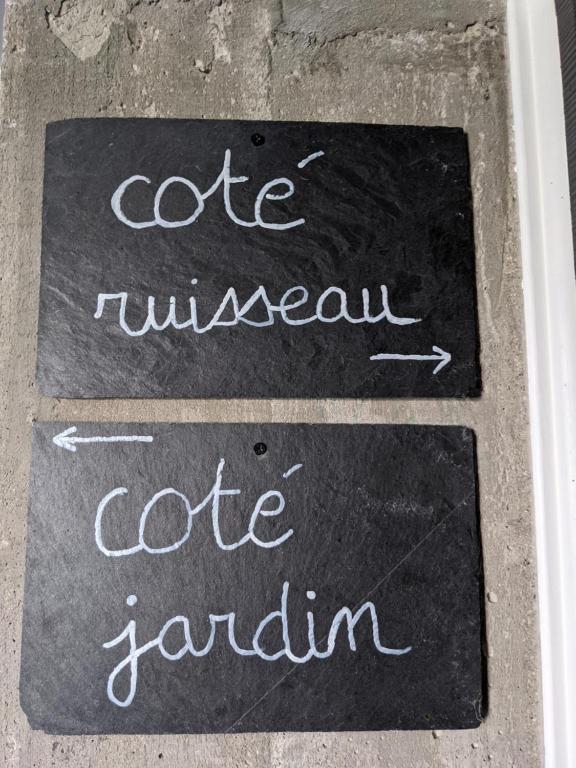 coté
ruisseau
coté
jardin